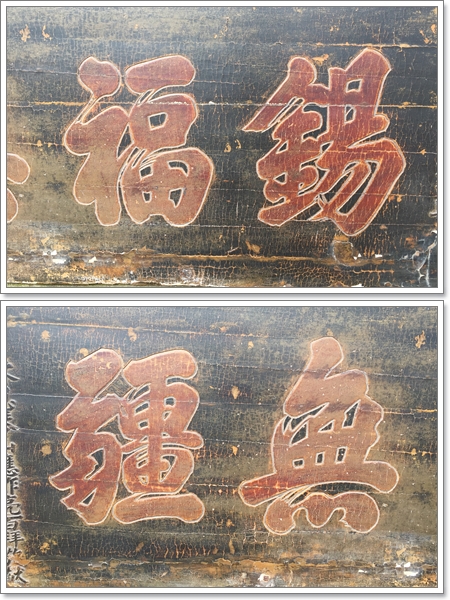 錫福
無疆